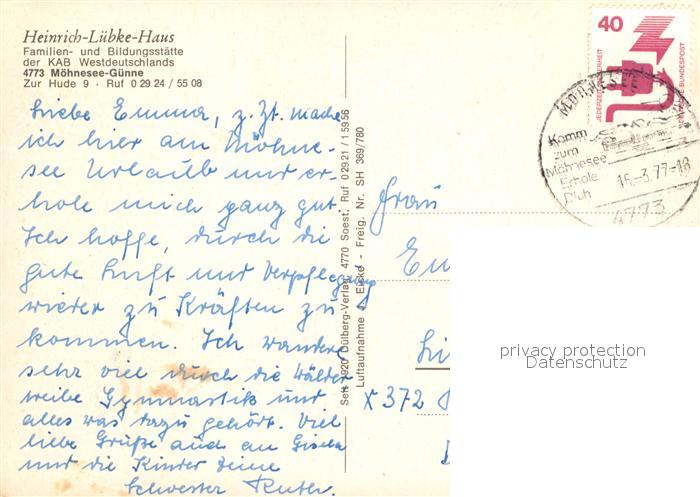 Heinrich-Lübke-Haus
Familien- und Bildungsstätte
der KAB Westdeutschlands
4773 Möhnesee-Günne
Zur Hude 9 · Ruf 0 29 24 / 55 08
Liebe Emma, z. Zt. mache
ich hier am Möhne-
see Urlaub und er-
hole mich ganz gut.
Ich hoffe, durch die
gute Luft und Verpflegung
wieder zu Kräften zu
kommen. Ich wandere
sehr viel durch die Wälder
treibe Gymnastik und
alles was dazu gehört. Viel
liebe Grüße auch an Gisela
und die Kinder Deine
Schwester Ruth.
Seit 1920 Dülberg-Verlag 4770 Soest, Ruf 02921 / 15956
Luftaufnahme J. Eicke - Freig. Nr. SH 369/780
40
JEDERZEIT SICHERHEIT
DEUTSCHE BUNDESPOST
MÖHNESEE
Komm
zum
Möhnesee
Erhole
Dich
16.-3.77-18
4773
Frau
Em
Li
x 372
privacy protection
Datenschutz